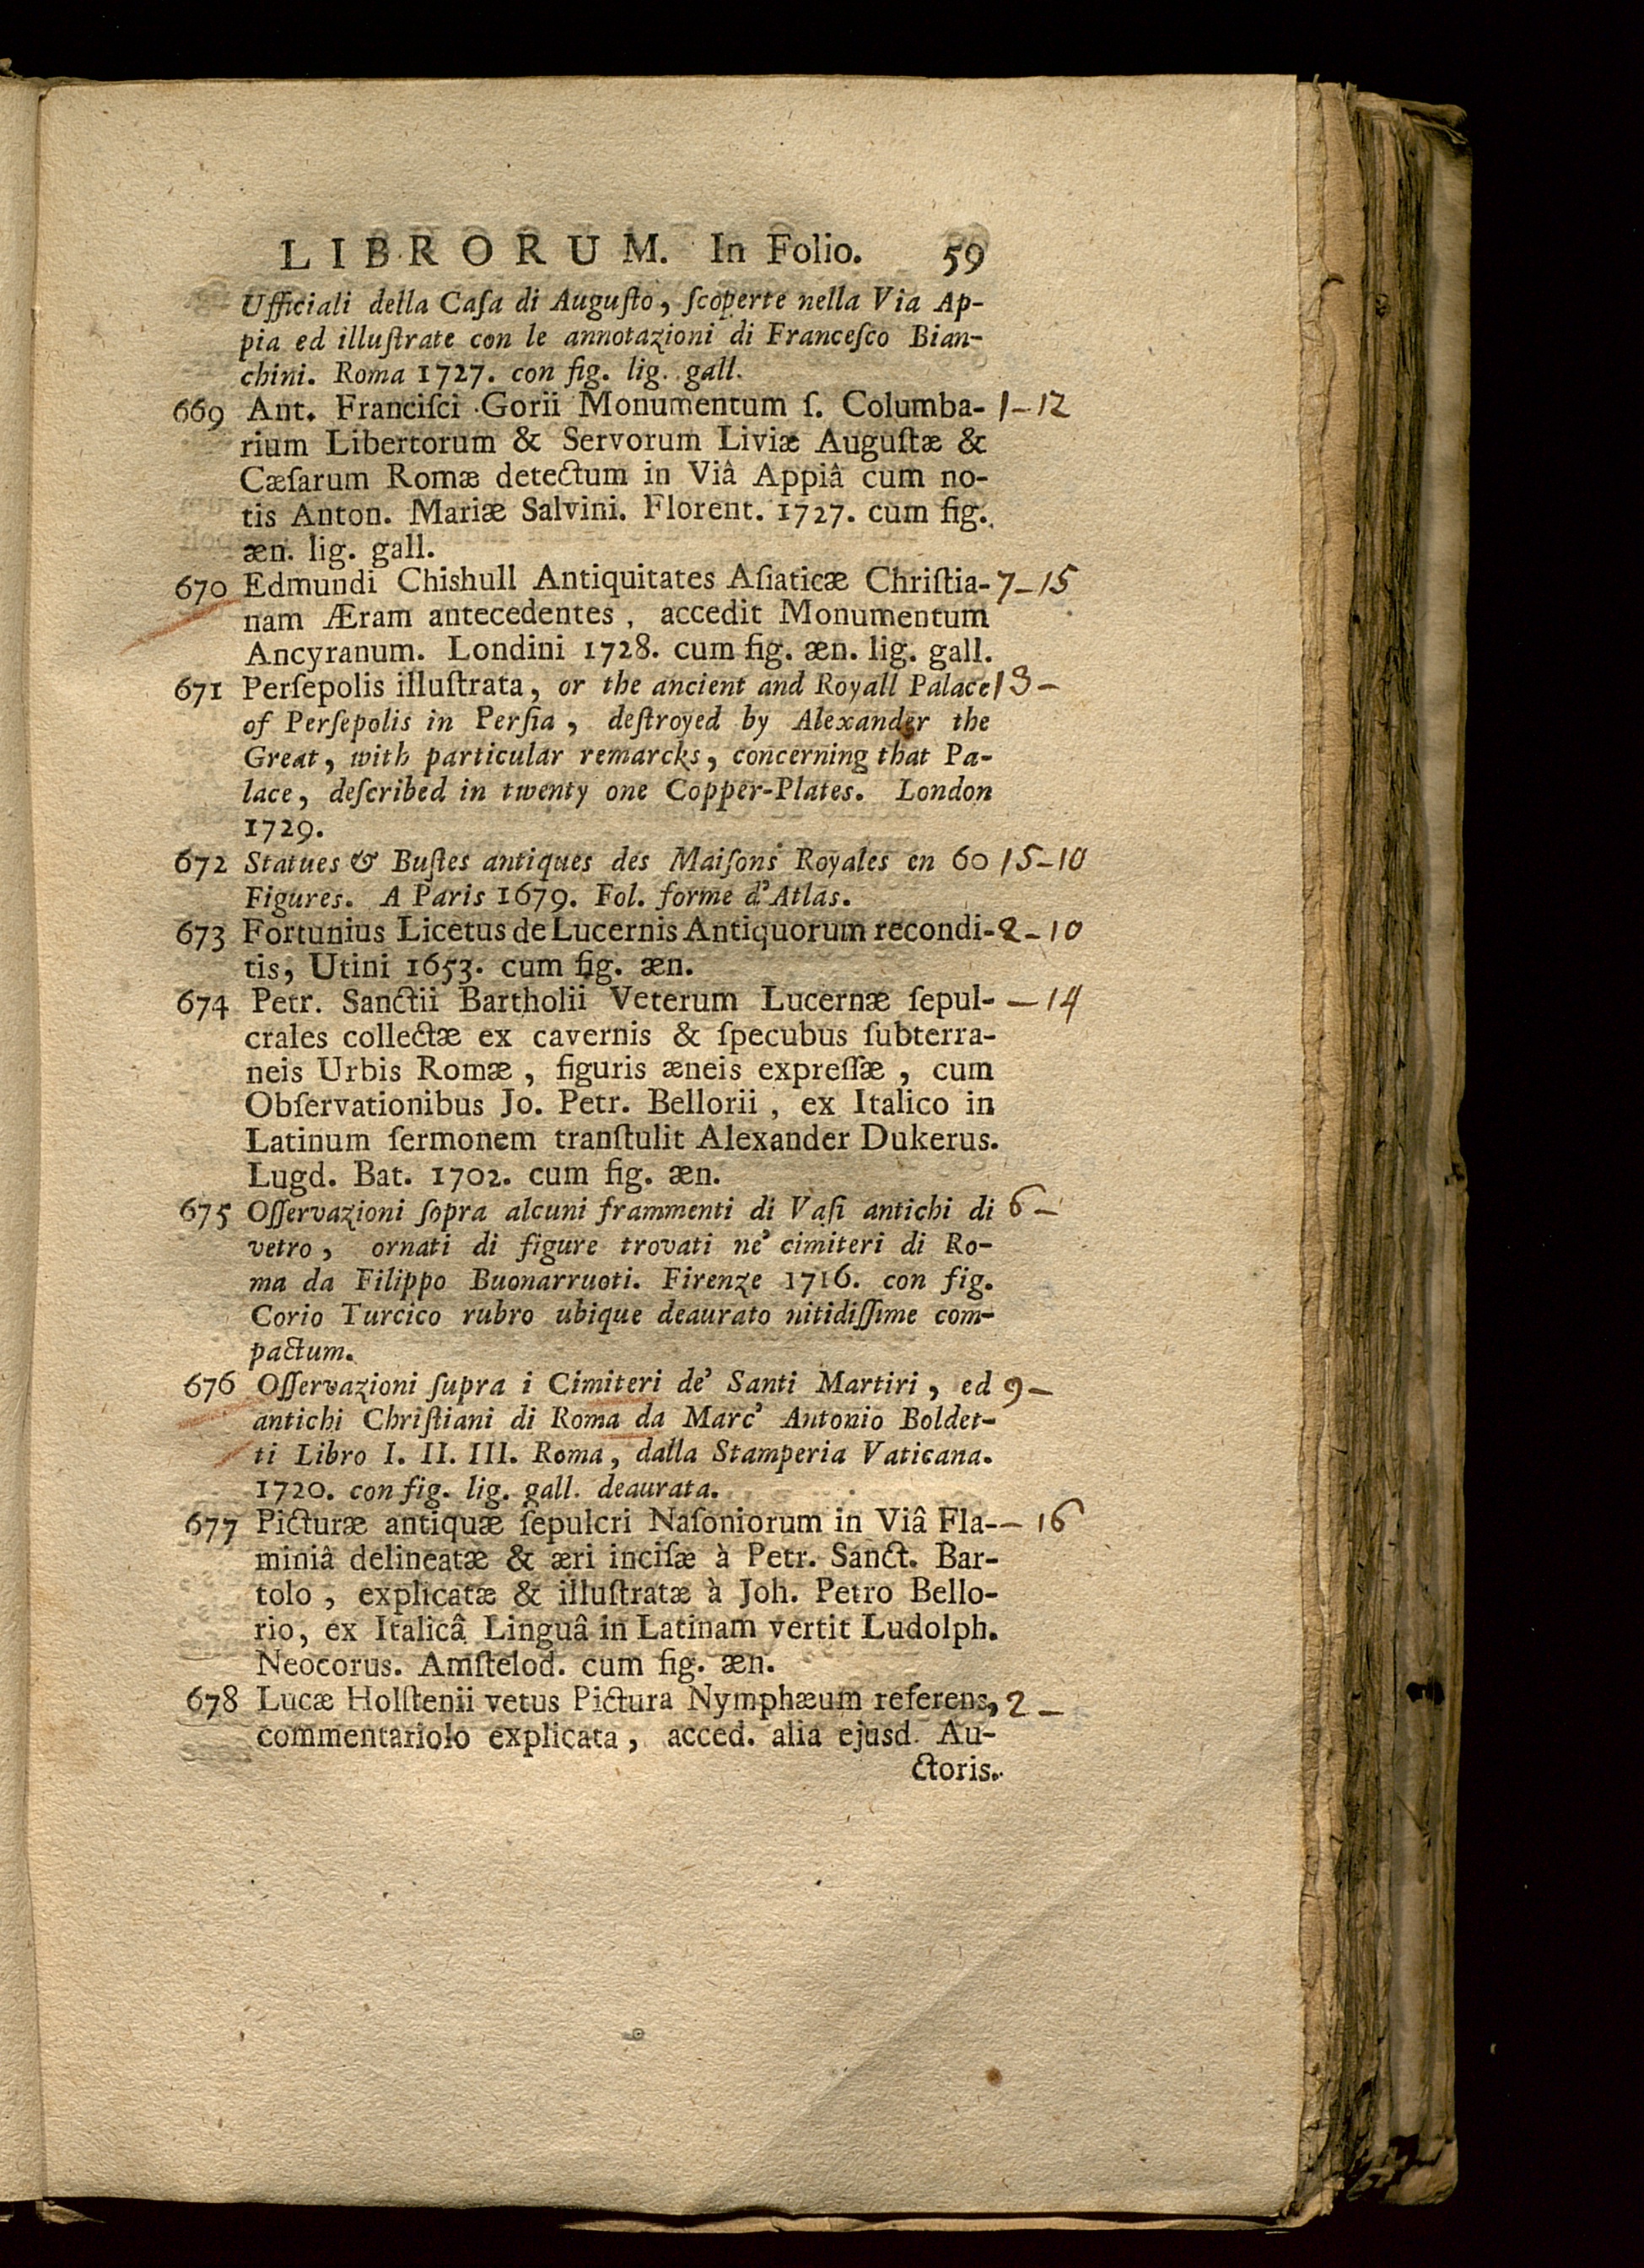 LIBRORUM. In Folio. 59
Ufficiali della Caſa di Auguſto, ſcoperte nella Via Ap-
pia ed illuſtrate con le annotazioni di Franceſco Bian-
chini. Roma 1727. con fig. lig. gall.
669 Ant. Franciſci Gorii Monumentum ſ. Columba- 1-12
rium Libertorum & Servorum Liviæ Auguſtæ &
Cæſarum Romæ detectum in Viâ Appiâ cum no-
tis Anton. Mariæ Salvini. Florent. 1727. cum fig.
æn. lig. gall.
670 Edmundi Chishull Antiquitates Aſiaticæ Chriſtia- 7-15
nam Æram antecedentes, accedit Monumentum
Ancyranum. Londini 1728. cum fig. æn. lig. gall.
671 Perſepolis illuſtrata, or the ancient and Royall Palace 13-
of Perſepolis in Perſia, deſtroyed by Alexander the
Great, with particular remarcks, concerning that Pa-
lace, deſcribed in twenty one Copper-Plates. London
1729.
672 Statues & Buſtes antiques des Maiſons Royales en 60 15-10
Figures. A Paris 1679. Fol. forme d'Atlas.
673 Fortunius Licetus de Lucernis Antiquorum recondi- 2-10
tis, Utini 1653. cum fig. æn.
674 Petr. Sanctii Bartholii Veterum Lucernæ ſepul- -14
crales collectæ ex cavernis & ſpecubus ſubterra-
neis Urbis Romæ, figuris æneis expreſſæ, cum
Obſervationibus Jo. Petr. Bellorii, ex Italico in
Latinum ſermonem tranſtulit Alexander Dukerus.
Lugd. Bat. 1702. cum fig. æn.
675 Oſſervazioni ſopra alcuni frammenti di Vaſi antichi di 6-
vetro, ornati di figure trovati ne' cimiteri di Ro-
ma da Filippo Buonarruoti. Firenze 1716. con fig.
Corio Turcico rubro ubique deaurato nitidiſſime com-
pactum.
676 Oſſervazioni ſupra i Cimiteri de' Santi Martiri, ed 9-
antichi Chriſtiani di Roma da Marc' Antonio Boldet-
ti Libro I. II. III. Roma, dalla Stamperia Vaticana.
1720. con fig. lig. gall. deaurata.
677 Picturæ antiquæ ſepulcri Naſoniorum in Viâ Fla- -16
miniâ delineatæ & æri inciſæ à Petr. Sanct. Bar-
tolo, explicatæ & illuſtratæ à Joh. Petro Bello-
rio, ex Italicâ Linguâ in Latinam vertit Ludolph.
Neocorus. Amſtelod. cum fig. æn.
678 Lucæ Holſtenii vetus Pictura Nymphæum referens, 2-
commentariolo explicata, acced. alia ejusd. Au-
ctoris.